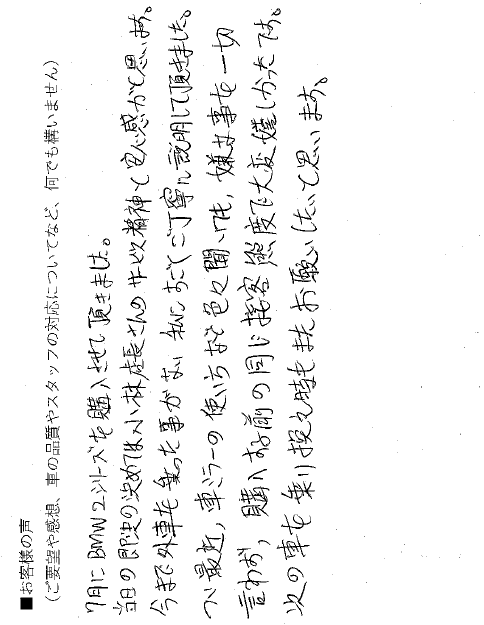 ■お客様の声
（ご要望や感想、車の品質やスタッフの対応についてなど、何でも構いません）
7月にBMW2シリーズを購入させて頂きました。
当日の即決の決めては小林店長さんのサービス精神と安心感だと思います。
今まで外車を乗った事がない私にあごとご丁寧に説明して頂きました。
つい最近，車ミラーの使いちなど色々聞いても，嫌な事を一切
言わず，購入する前の同じ接客態度で大変嬉しかったです。
次の車を乗り換える時もまたお願いしたいと思います。